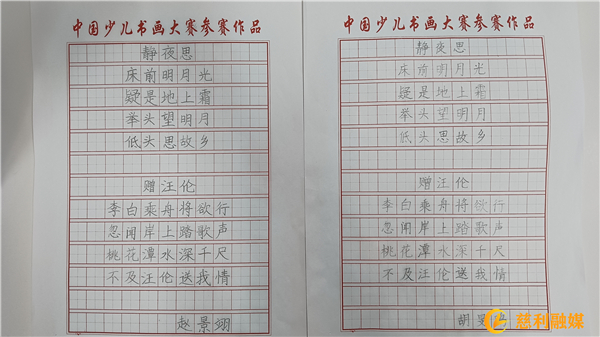 中国少儿书画大赛参赛作品
静夜思
床前明月光
疑是地上霜
举头望明月
低头思故乡
赠汪伦
李白乘舟将欲行
忽闻岸上踏歌声
桃花潭水深千尺
不及汪伦送我情
赵景翊
中国少儿书画大赛参赛作品
静夜思
床前明月光
疑是地上霜
举头望明月
低头思故乡
赠汪伦
李白乘舟将欲行
忽闻岸上踏歌声
桃花潭水深千尺
不及汪伦送我情
胡
慈利融媒